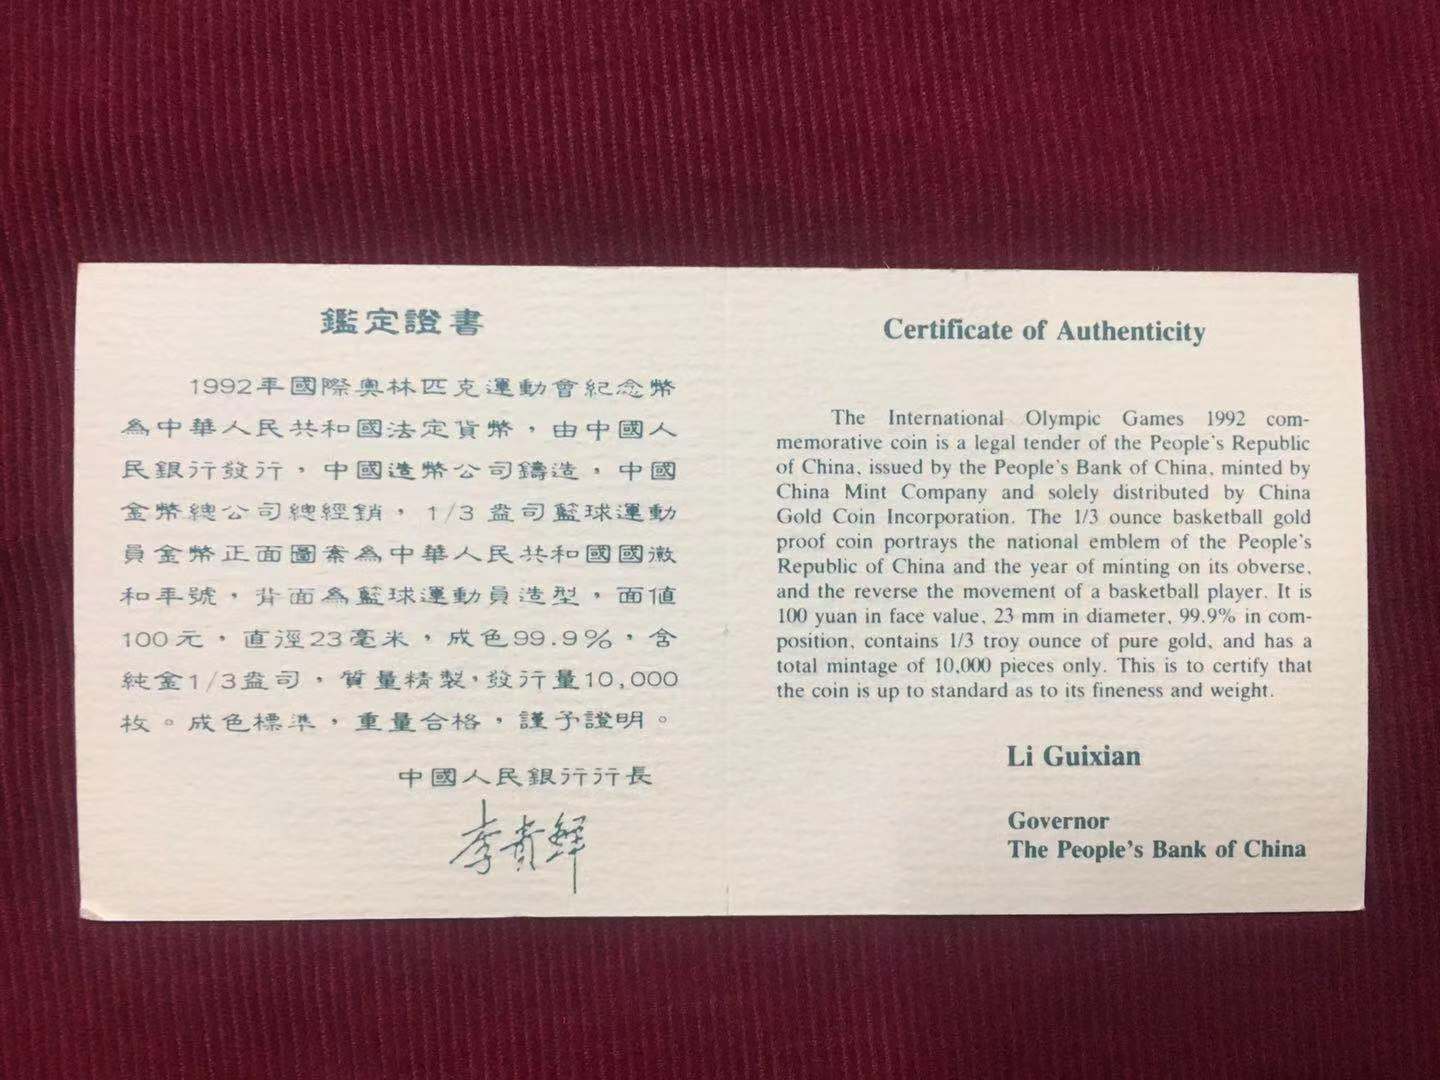 鑑定證書
1992年國際奧林匹克運動會紀念幣
為中華人民共和國法定貨幣，由中國人
民銀行發行，中國造幣公司鑄造，中國
金幣總公司總經銷，1/3盎司籃球運動
員金幣正面圖案為中華人民共和國國徽
和年號，背面為籃球運動員造型，面值
100元，直徑23毫米，成色99.9%，含
純金1/3盎司，質量精製，發行量10,000
枚。成色標準，重量合格，謹予證明。
中國人民銀行行長
李貴鮮
Certificate of Authenticity
The International Olympic Games 1992 com-
memorative coin is a legal tender of the People's Republic
of China, issued by the People's Bank of China, minted by
China Mint Company and solely distributed by China
Gold Coin Incorporation. The 1/3 ounce basketball gold
proof coin portrays the national emblem of the People's
Republic of China and the year of minting on its obverse,
and the reverse the movement of a basketball player. It is
100 yuan in face value, 23 mm in diameter, 99.9% in com-
position, contains 1/3 troy ounce of pure gold, and has a
total mintage of 10,000 pieces only. This is to certify that
the coin is up to standard as to its fineness and weight.
Li Guixian
Governor
The People's Bank of China